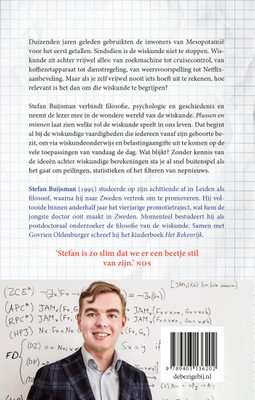 Duizenden jaren geleden gebruikten de inwoners van Mesopotamië
voor het eerst getallen. Sindsdien is de wiskunde niet te stoppen. Wis-
kunde zit achter vrijwel alles: van zoekmachine tot cruisecontrol, van
koffiezetapparaat tot dienstregeling, van weersvoorspelling tot Netflix-
aanbeveling. Maar als je zelf vrijwel nooit iets hoeft uit te rekenen, hoe
relevant is het dan om die wiskunde te begrijpen?
Stefan Buijsman verbindt filosofie, psychologie en geschiedenis en
neemt de lezer mee in de wondere wereld van de wiskunde. Plussen en
minnen laat zien welke rol de wiskunde speelt in ons leven. Dat begint
al bij de wiskundige vaardigheden die iedereen vanaf zijn geboorte be-
zit, om via wiskundeonderwijs en belastingaangifte uit te komen op de
vele toepassingen van vandaag de dag. Wat blijkt? Zonder kennis van
de ideeën achter wiskundige berekeningen sta je al snel buitenspel als
het gaat om peilingen, statistieken of het filteren van nepnieuws.
Stefan Buijsman (1995) studeerde op zijn achttiende af in Leiden als
filosoof, waarna hij naar Zweden vertrok om te promoveren. Hij vol-
tooide binnen anderhalf jaar het vierjarige promotietraject, wat hem de
jongste doctor ooit maakt in Zweden. Momenteel bestudeert hij als
postdoctoraal onderzoeker de filosofie van de wiskunde. Samen met
Govrien Oldenburger schreef hij het kinderboek Het Rekenrijk.
'Stefan is zo slim dat we er een beetje stil
van zijn.' NOS
(ZCE*)
(APC*)
(RPC*)
(HP)
FD:
9 789401 136202
debezigebij.nl